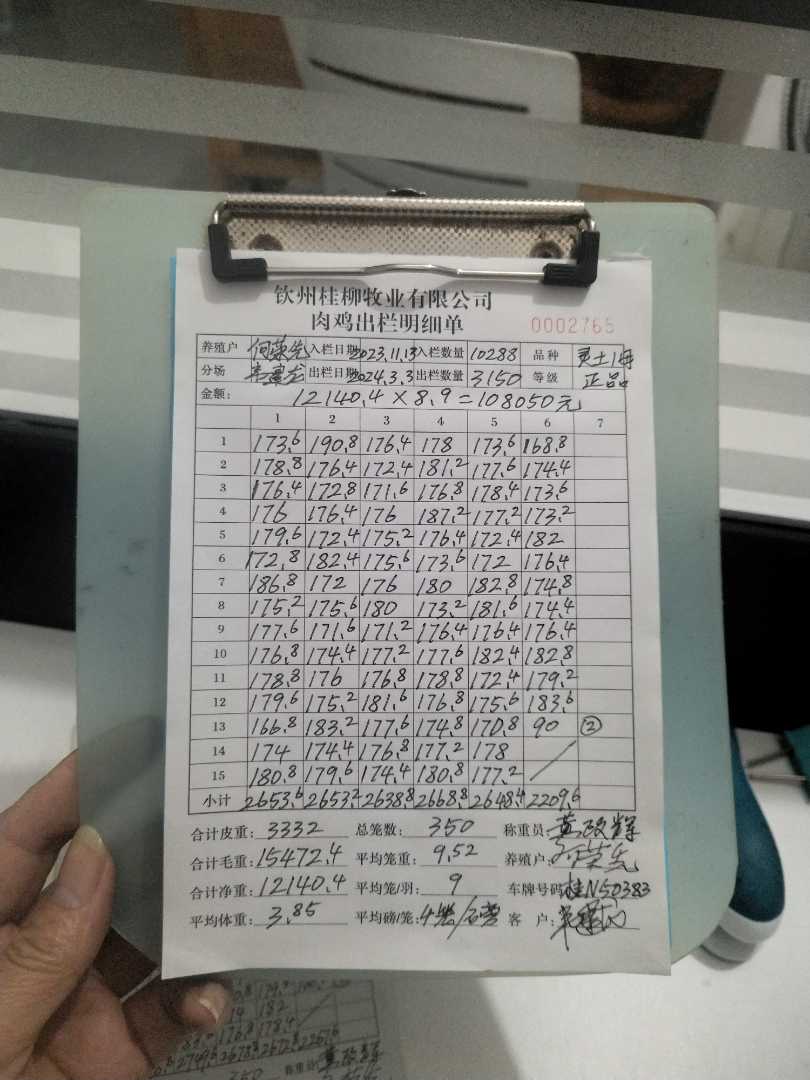 钦州桂柳牧业有限公司
肉鸡出栏明细单 0002765
养殖户 何荣先 入栏日期 2023.11.13 入栏数量 10288 品种 灵土1号
分场 出栏日期 2024.3.3 出栏数量 3150 等级 正品
金额: 12140.4 × 8.9 = 108050元
1 2 3 4 5 6 7
1 173.6 190.8 176.4 178 173.6 168.8
2 178.8 176.4 172.4 181.2 177.6 174.4
3 176.4 172.8 171.6 176.8 178.4 173.6
4 176 176.4 176 187.2 177.2 173.2
5 179.6 172.4 175.2 176.4 172.4 182
6 172.8 182.4 175.6 173.6 172 176.4
7 186.8 172 176 180 182.8 174.8
8 175.2 175.6 180 173.2 181.6 174.4
9 177.6 171.6 171.2 176.4 176.4 176.4
10 176.8 174.4 177.2 177.6 182.4 182.8
11 178.8 176 176.8 178.8 172.4 179.2
12 179.6 175.2 181.6 176.8 175.6 183.6
13 166.8 183.2 177.6 174.8 170.8 90 ②
14 174 174.4 176.8 177.2 178
15 180.8 179.6 174.4 180.8 177.2
小计 2653.6 2653.2 2638.8 2668.8 2648.4 2209.6
合计皮重: 3332 总笼数: 350 称重员: 黄政辉
合计毛重: 15472.4 平均笼重: 9.52 养殖户: 何荣先
合计净重: 12140.4 平均笼/羽: 9 车牌号码: 桂N50383
平均体重: 3.85 平均磅/笼: 4笼/磅 客户: